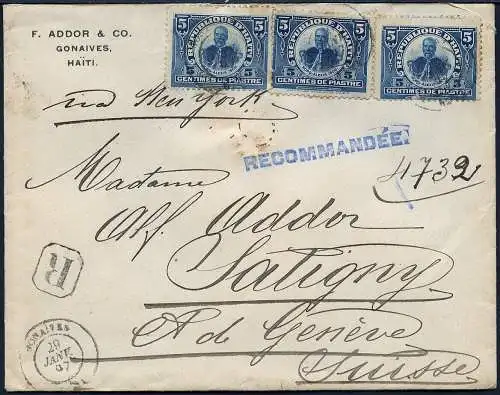 F. ADDOR & CO.
GONAIVES,
HAÏTI.
5 RÉPUBLIQUE D'HAITI 5
5 5
CENTIMES DE PIASTRE
5 RÉPUBLIQUE D'HAITI 5
5 5
CENTIMES DE PIASTRE
5 RÉPUBLIQUE D'HAITI 5
5 5
CENTIMES DE PIASTRE
via New York
RECOMMANDÉE
4732
Madame
Alf. Addor
Satigny
Ct de Genève
Suisse
R
GONAIVES
29
JANV
07